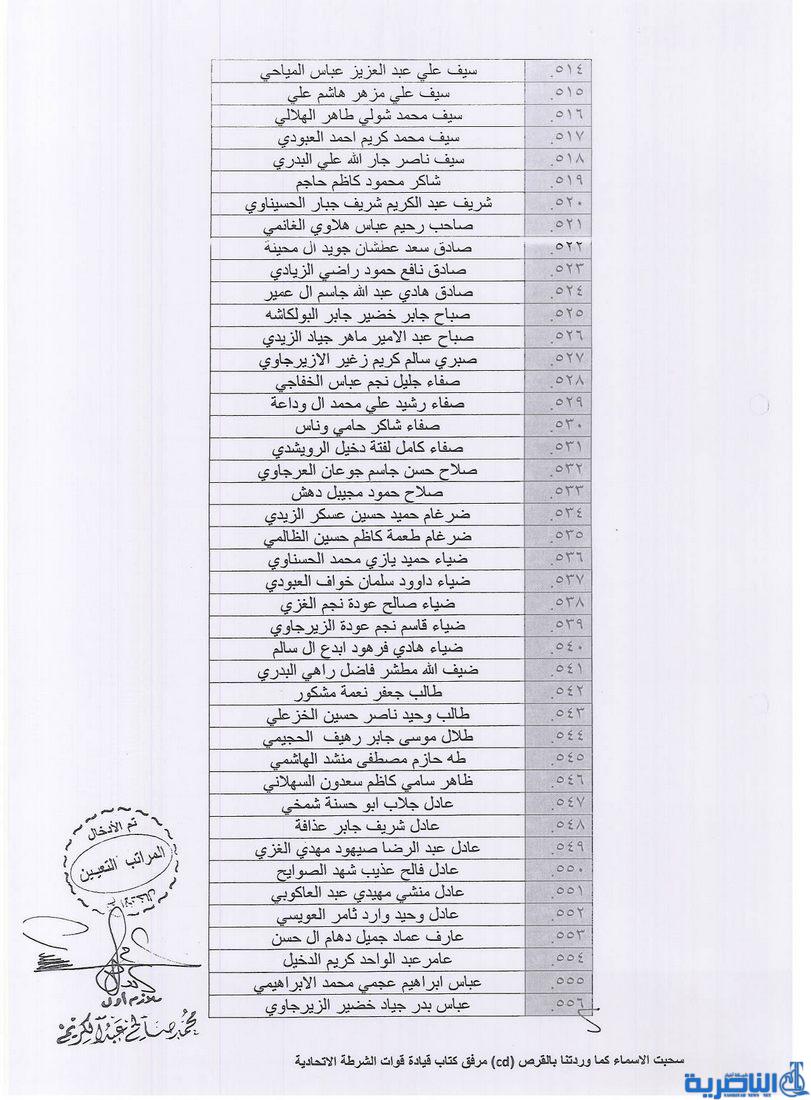 ٥١٤. سيف علي عبد العزيز عباس المياحي
٥١٥. سيف علي مزهر هاشم علي
٥١٦. سيف محمد شولي طاهر الهلالي
٥١٧. سيف محمد كريم احمد العبودي
٥١٨. سيف ناصر جار الله علي البدري
٥١٩. شاكر محمود كاظم حاجم
٥٢٠. شريف عبد الكريم شريف جبار الحسيناوي
٥٢١. صاحب رحيم عباس هلاوي الغانمي
٥٢٢. صادق سعد عطشان جويد ال محينة
٥٢٣. صادق نافع حمود راضي الزيادي
٥٢٤. صادق هادي عبد الله جاسم ال عمير
٥٢٥. صباح جابر خضير جابر البولكاشه
٥٢٦. صباح عبد الامير ماهر جياد الزيدي
٥٢٧. صبري سالم كريم زغير الازيرجاوي
٥٢٨. صفاء جليل نجم عباس الخفاجي
٥٢٩. صفاء رشيد علي محمد ال وداعة
٥٣٠. صفاء شاكر حامي وناس
٥٣١. صفاء كامل لفتة دخيل الرويشدي
٥٣٢. صلاح حسن جاسم جوعان العرجاوي
٥٣٣. صلاح حمود مجيبل دهش
٥٣٤. ضرغام حميد حسين عسكر الزيدي
٥٣٥. ضرغام طعمة كاظم حسين الظالمي
٥٣٦. ضياء حميد يازي محمد الحسناوي
٥٣٧. ضياء داوود سلمان خواف العبودي
٥٣٨. ضياء صالح عودة نجم الغزي
٥٣٩. ضياء قاسم نجم عودة الزيرجاوي
٥٤٠. ضياء هادي فرهود ابدع ال سالم
٥٤١. ضيف الله مطشر فاضل راهي البدري
٥٤٢. طالب جعفر نعمة مشكور
٥٤٣. طالب وحيد ناصر حسين الخزعلي
٥٤٤. طلال موسى جابر رهيف الحجيمي
٥٤٥. طه حازم مصطفى منشد الهاشمي
٥٤٦. ظاهر سامي كاظم سعدون السهلاني
٥٤٧. عادل جلاب ابو حسنة شمخي
٥٤٨. عادل شريف جابر عذافة
٥٤٩. عادل عبد الرضا صيهود مهدي الغزي
٥٥٠. عادل فالح عذيب شهد الصوايح
٥٥١. عادل منشي مهيدي عبد العاكوبي
٥٥٢. عادل وحيد وارد ثامر العويسي
٥٥٣. عارف عماد جميل دهام ال حسن
٥٥٤. عامرعبد الواحد كريم الدخيل
٥٥٥. عباس ابراهيم عجمي محمد الابراهيمي
٥٥٦. عباس بدر جياد خضير الزيرجاوي
تم الأدخال
المراتب التعيين
ملازم أول
محمد صالح عبد الكريم
سحبت الاسماء كما وردتنا بالقرص (cd) مرفق كتاب قيادة قوات الشرطة الاتحادية
شبكة اخبار
الناصرية
NASIRIYAH NEWS NET